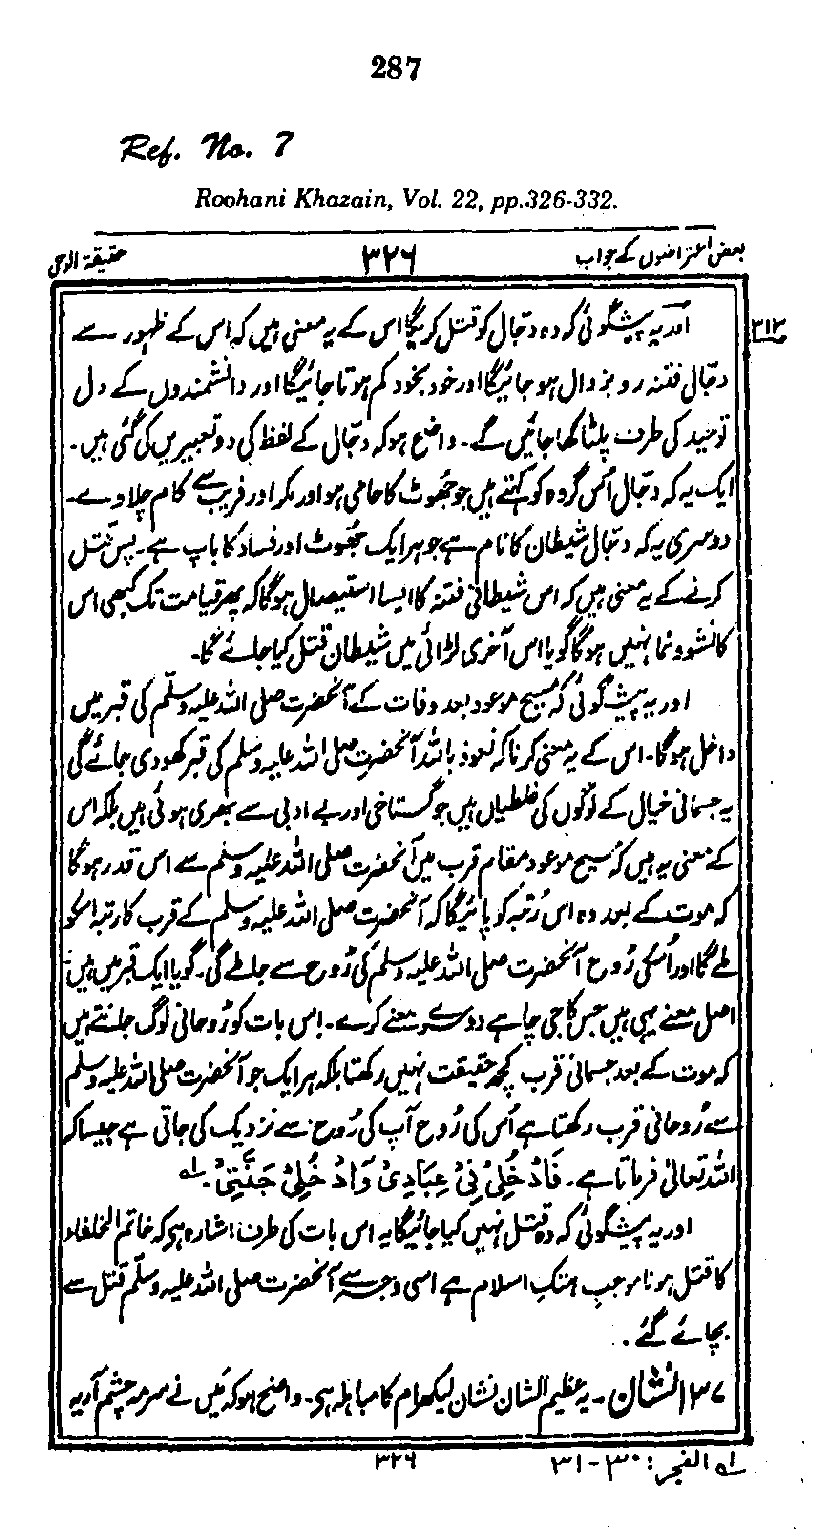 287
Ref. No. 7
Roohani Khazain, Vol. 22, pp.326-332.
حقیقۃ الوحی ۳۲۶ بعض اعتراضوں کے جواب
۳۱۳
اور یہ پیشگوئی کہ وہ دجّال کو قتل کریگا اس کے یہ معنی ہیں کہ اس کے ظہور سے
دجّال فتنہ روبزوال ہو جائیگا اور خود بخود کم ہوتا جائیگا اور دانشمندوں کے دل
توحید کی طرف پلٹا کھا جائیں گے۔ واضح ہو کہ دجّال کے لفظ کی دو تعبیریں کی گئی ہیں۔
ایک یہ کہ دجّال اُس گروہ کو کہتے ہیں جو جھوٹ کا حامی ہو اور مکر اور فریب سے کام چلاوے۔
دوسری یہ کہ دجّال شیطان کا نام ہے جو ہر ایک جھوٹ اور فساد کا باپ ہے۔ پس قتل
کرنے کے یہ معنی ہیں کہ اس شیطانی فتنہ کا ایسا استیصال ہوگا کہ پھر قیامت تک کبھی اس
کا نشوونما نہیں ہوگا گویا اس آخری لڑائی میں شیطان قتل کیا جائے گا۔
اور یہ پیشگوئی کہ مسیح موعود بعد وفات کے آنحضرت صلی اللہ علیہ وسلم کی قبر میں
داخل ہوگا۔ اس کے یہ معنی کرنا کہ نعوذ باللہ آنحضرت صلی اللہ علیہ وسلم کی قبر کھودی جائے گی
یہ جسمانی خیال کے لوگوں کی غلطیاں ہیں جو گستاخی اور بے ادبی سے بھری ہوئی ہیں بلکہ اس
کے معنی یہ ہیں کہ مسیح موعود مقام قرب میں آنحضرت صلی اللہ علیہ وسلم سے اس قدر ہوگا
کہ موت کے بعد وہ اس رُتبہ کو پائیگا کہ آنحضرت صلی اللہ علیہ وسلم کے قرب کا رتبہ اسکو
ملے گا اور اُسکی رُوح آنحضرت صلی اللہ علیہ وسلم کی رُوح سے جا ملے گی۔ گویا ایک قبر میں ہیں
اصل معنے یہی ہیں جس کا جی چاہے دوسرے معنے کرے۔ اس بات کو رُوحانی لوگ جانتے ہیں
کہ موت کے بعد جسمانی قرب کچھ حقیقت نہیں رکھتا بلکہ ہر ایک جو آنحضرت صلی اللہ علیہ وسلم
سے رُوحانی قرب رکھتا ہے اُس کی رُوح آپ کی رُوح سے نزدیک کی جاتی ہے جیسا کہ
اللہ تعالیٰ فرماتا ہے۔ فَادْخُلِیْ فِیْ عِبَادِیْ وَادْخُلِیْ جَنَّتِیْ ۱؎۔
اور یہ پیشگوئی کہ وہ قتل نہیں کیا جائیگا یہ اس بات کی طرف اشارہ ہے کہ خاتم الخلفاء
کا قتل ہونا موجب ہتک اسلام ہے اسی وجہ سے آنحضرت صلی اللہ علیہ وسلم قتل سے
بچائے گئے۔
۱۳۷ نشان۔ یہ عظیم الشان نشان لیکھرام کا مباہلہ ہے۔ واضح ہو کہ میں نے سرمہ چشم آریہ
۱؎ الفجر: ۳۰-۳۱
۳۲۶